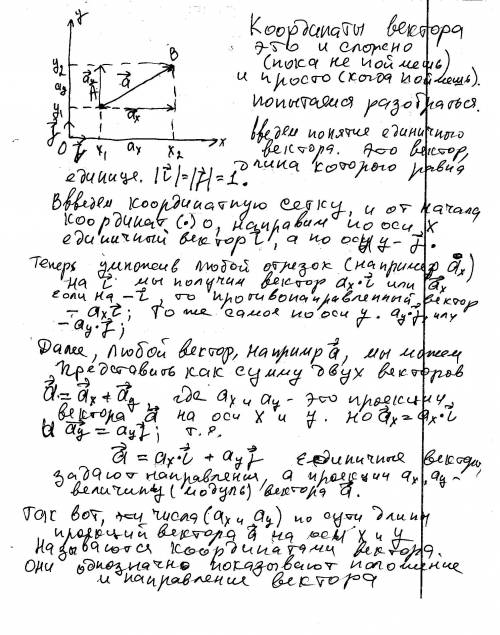 y
Координаты вектора
это и сложно
(пока не поймешь)
и просто (когда поймешь).
попытаемся разобраться.
y₂
B
a⃗y
a⃗
ay
A
y₁
a⃗x
j⃗
O
i⃗
x₁
ax
x₂
x
введем понятие единичного
вектора. это вектор,
длина которого равна
единице. |i⃗|=|j⃗|=1.
Введем координатную сетку, и от начала
координат (·) о, направим по оси x
единичный вектор i⃗, а по оси y - j⃗.
Теперь умножив любой отрезок (например a⃗x)
на i⃗ мы получим вектор ax·i⃗ или a⃗x
если на -i⃗, то противонаправленный вектор
- ax i⃗; То же самое по оси y. ay·j⃗, или
-ay·j⃗;
Далее, любой вектор, напримр a⃗, мы можем
представить как сумму двух векторов
a⃗ = a⃗x + a⃗y где ax и ay - это проекции
вектора a⃗ на оси x и y. но a⃗x = ax·i⃗
и a⃗y = ay j⃗; т.е.
a⃗ = ax·i⃗ + ay j⃗ единичные вектора,
задают направления, а проекции ax, ay -
величину (модуль) вектора a⃗.
Так вот, числа (ax и ay) по сути длины
проекций вектора a⃗ на оси x и y
называются координатами вектора.
Они однозначно показывают положение
и направление вектора